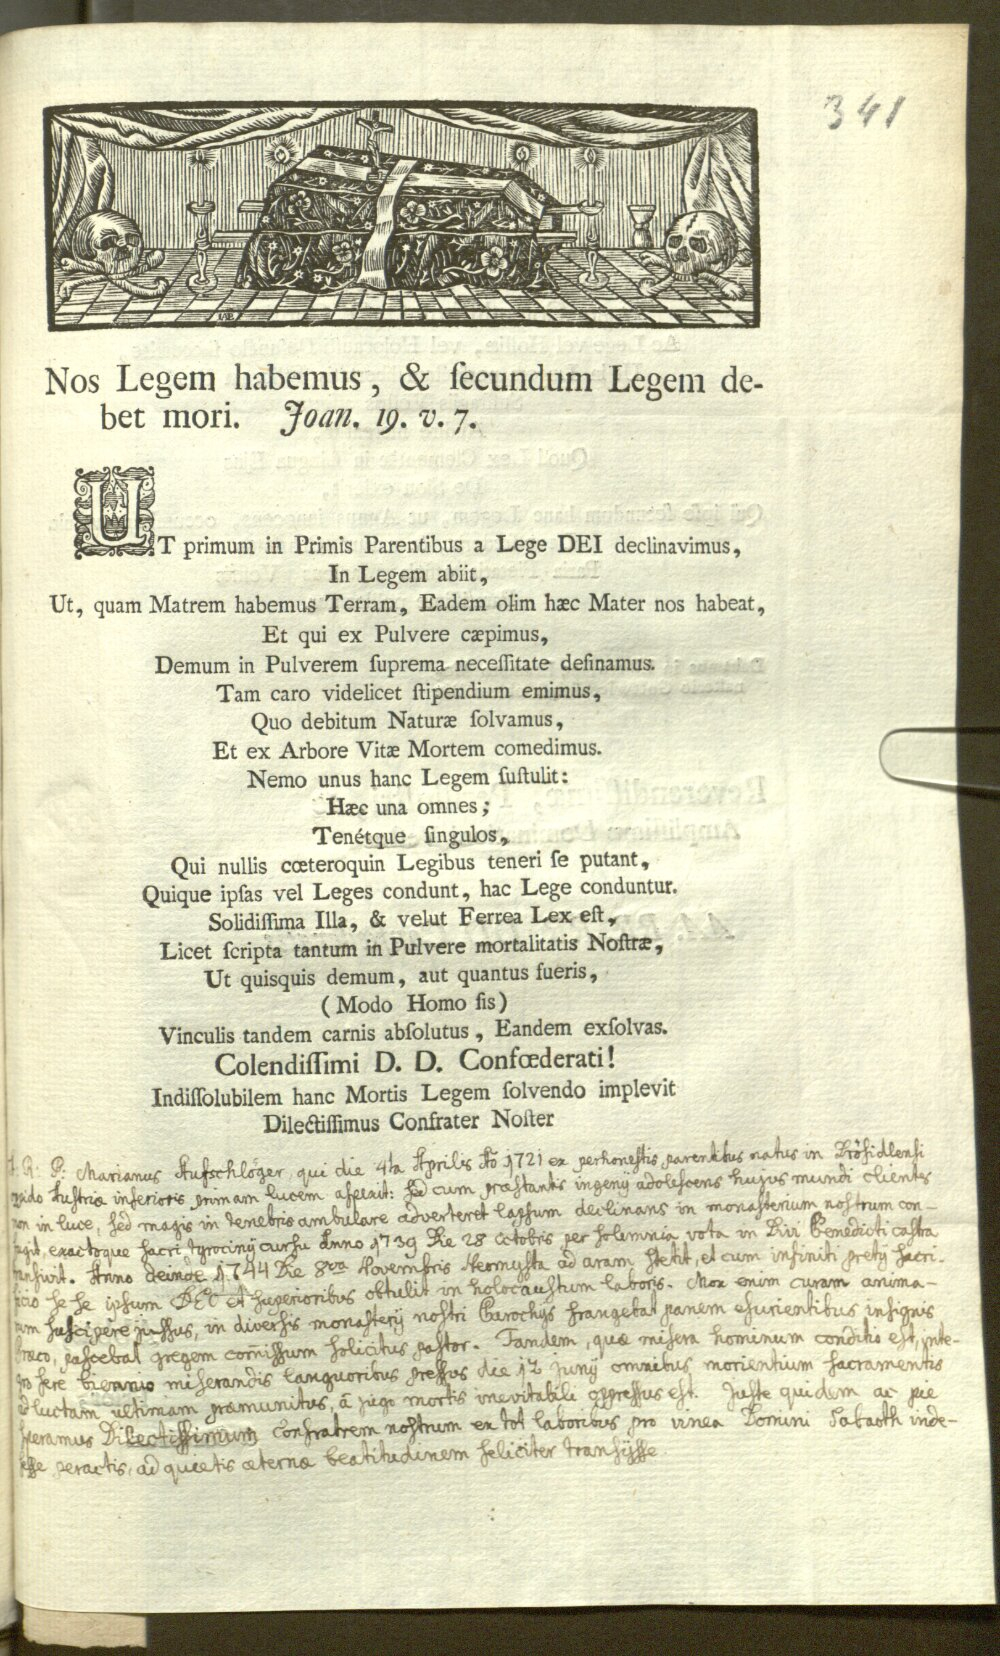 341
IAB
Nos Legem habemus, & ſecundum Legem de-
bet mori. Joan. 19. v. 7.
UT primum in Primis Parentibus a Lege DEI declinavimus,
In Legem abiit,
Ut, quam Matrem habemus Terram, Eadem olim hæc Mater nos habeat,
Et qui ex Pulvere cæpimus,
Demum in Pulverem ſuprema neceſſitate deſinamus.
Tam caro videlicet ſtipendium emimus,
Quo debitum Naturæ ſolvamus,
Et ex Arbore Vitæ Mortem comedimus.
Nemo unus hanc Legem ſuſtulit:
Hæc una omnes;
Tenétque ſingulos,
Qui nullis cœteroquin Legibus teneri ſe putant,
Quique ipſas vel Leges condunt, hac Lege conduntur.
Solidiſſima Illa, & velut Ferrea Lex eſt,
Licet ſcripta tantum in Pulvere mortalitatis Noſtræ,
Ut quisquis demum, aut quantus fueris,
(Modo Homo ſis)
Vinculis tandem carnis abſolutus, Eandem exſolvas.
Colendiſſimi D. D. Confœderati!
Indiſſolubilem hanc Mortis Legem ſolvendo implevit
Dilectiſſimus Confrater Noſter
R: P: Marianus Aufschlöger, qui die 4ta Aprilis Ao 1721 ex perhonestis parentibus natus in
Austriæ inferioris primam lucem aspexit: sed cum præstantis ingenij adolescens hujus mundi clientes
non in luce, sed magis in tenebris ambulare adverteret lapsum declinans in monasterium nostrum con-
fugit, exactoque sacri tyrocinij cursu Anno 1739 Die 28 octobris per solemnia vota in Divi Benedicti castra
transivit. Anno deinde 1744 Die 8va Novembris Neomysta ad aram stetit, et cum infiniti pretij sacri-
ficio se se ipsum DEO et superioribus obtulit in holocaustum laboris. Mox enim curam anima-
rum suscipere jussus, in diversis monasterij nostri Parochijs frangebat panem esurientibus insignis
Præco, pascebat gregem comissum solicitus pastor. Tandem, quæ misera hominum conditio est, inte-
gro fere biennio miserandis languoribus pressus die 12 Junij omnibus morientium sacramentis
ad luctam ultimam præmunitus, à jugo mortis inevitabili oppressus est. Juste quidem ac pie
speramus Dilectissimum confratrem nostrum ex tot laboribus pro vinea Domini Sabaoth inde-
fesse peractis, ad quietis æternæ beatitudinem feliciter transijsse.